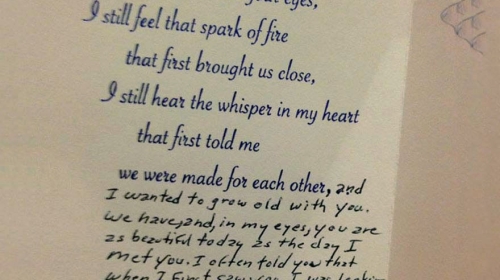 your eyes,
I still feel that spark of fire
that first brought us close,
I still hear the whisper in my heart
that first told me
we were made for each other, and
I wanted to grow old with you.
We have, and, in my eyes, you are
as beautiful today as the day I
met you. I often told you that
when I first saw you, I was looking